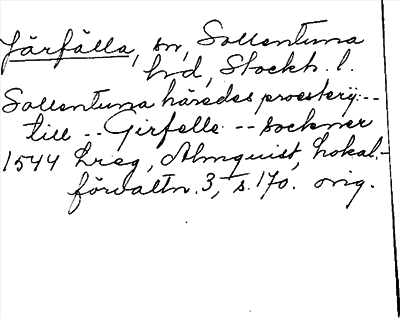 Järfälla, sn, Sollentuna
hd, Stockh. l.
Sollentuna häredes proesterij --
till -- Girfelle -- sockner
1544 Lreg, Almquist, Lokal-
förvaltn. 3, s. 170. orig.